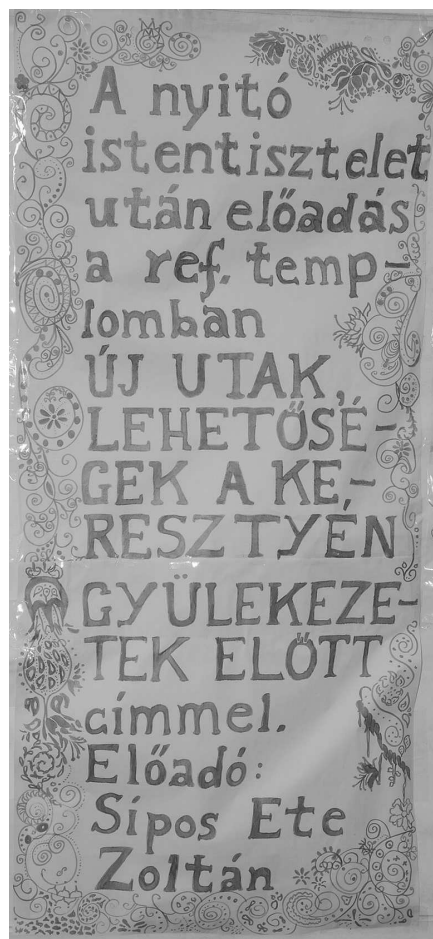 A nyitó
istentisztelet
után előadás
a ref. temp-
lomban
ÚJ UTAK,
LEHETŐSÉ-
GEK A KE-
RESZTYÉN
GYÜLEKEZE-
TEK ELŐTT
címmel.
Előadó:
Sípos Ete
Zoltán